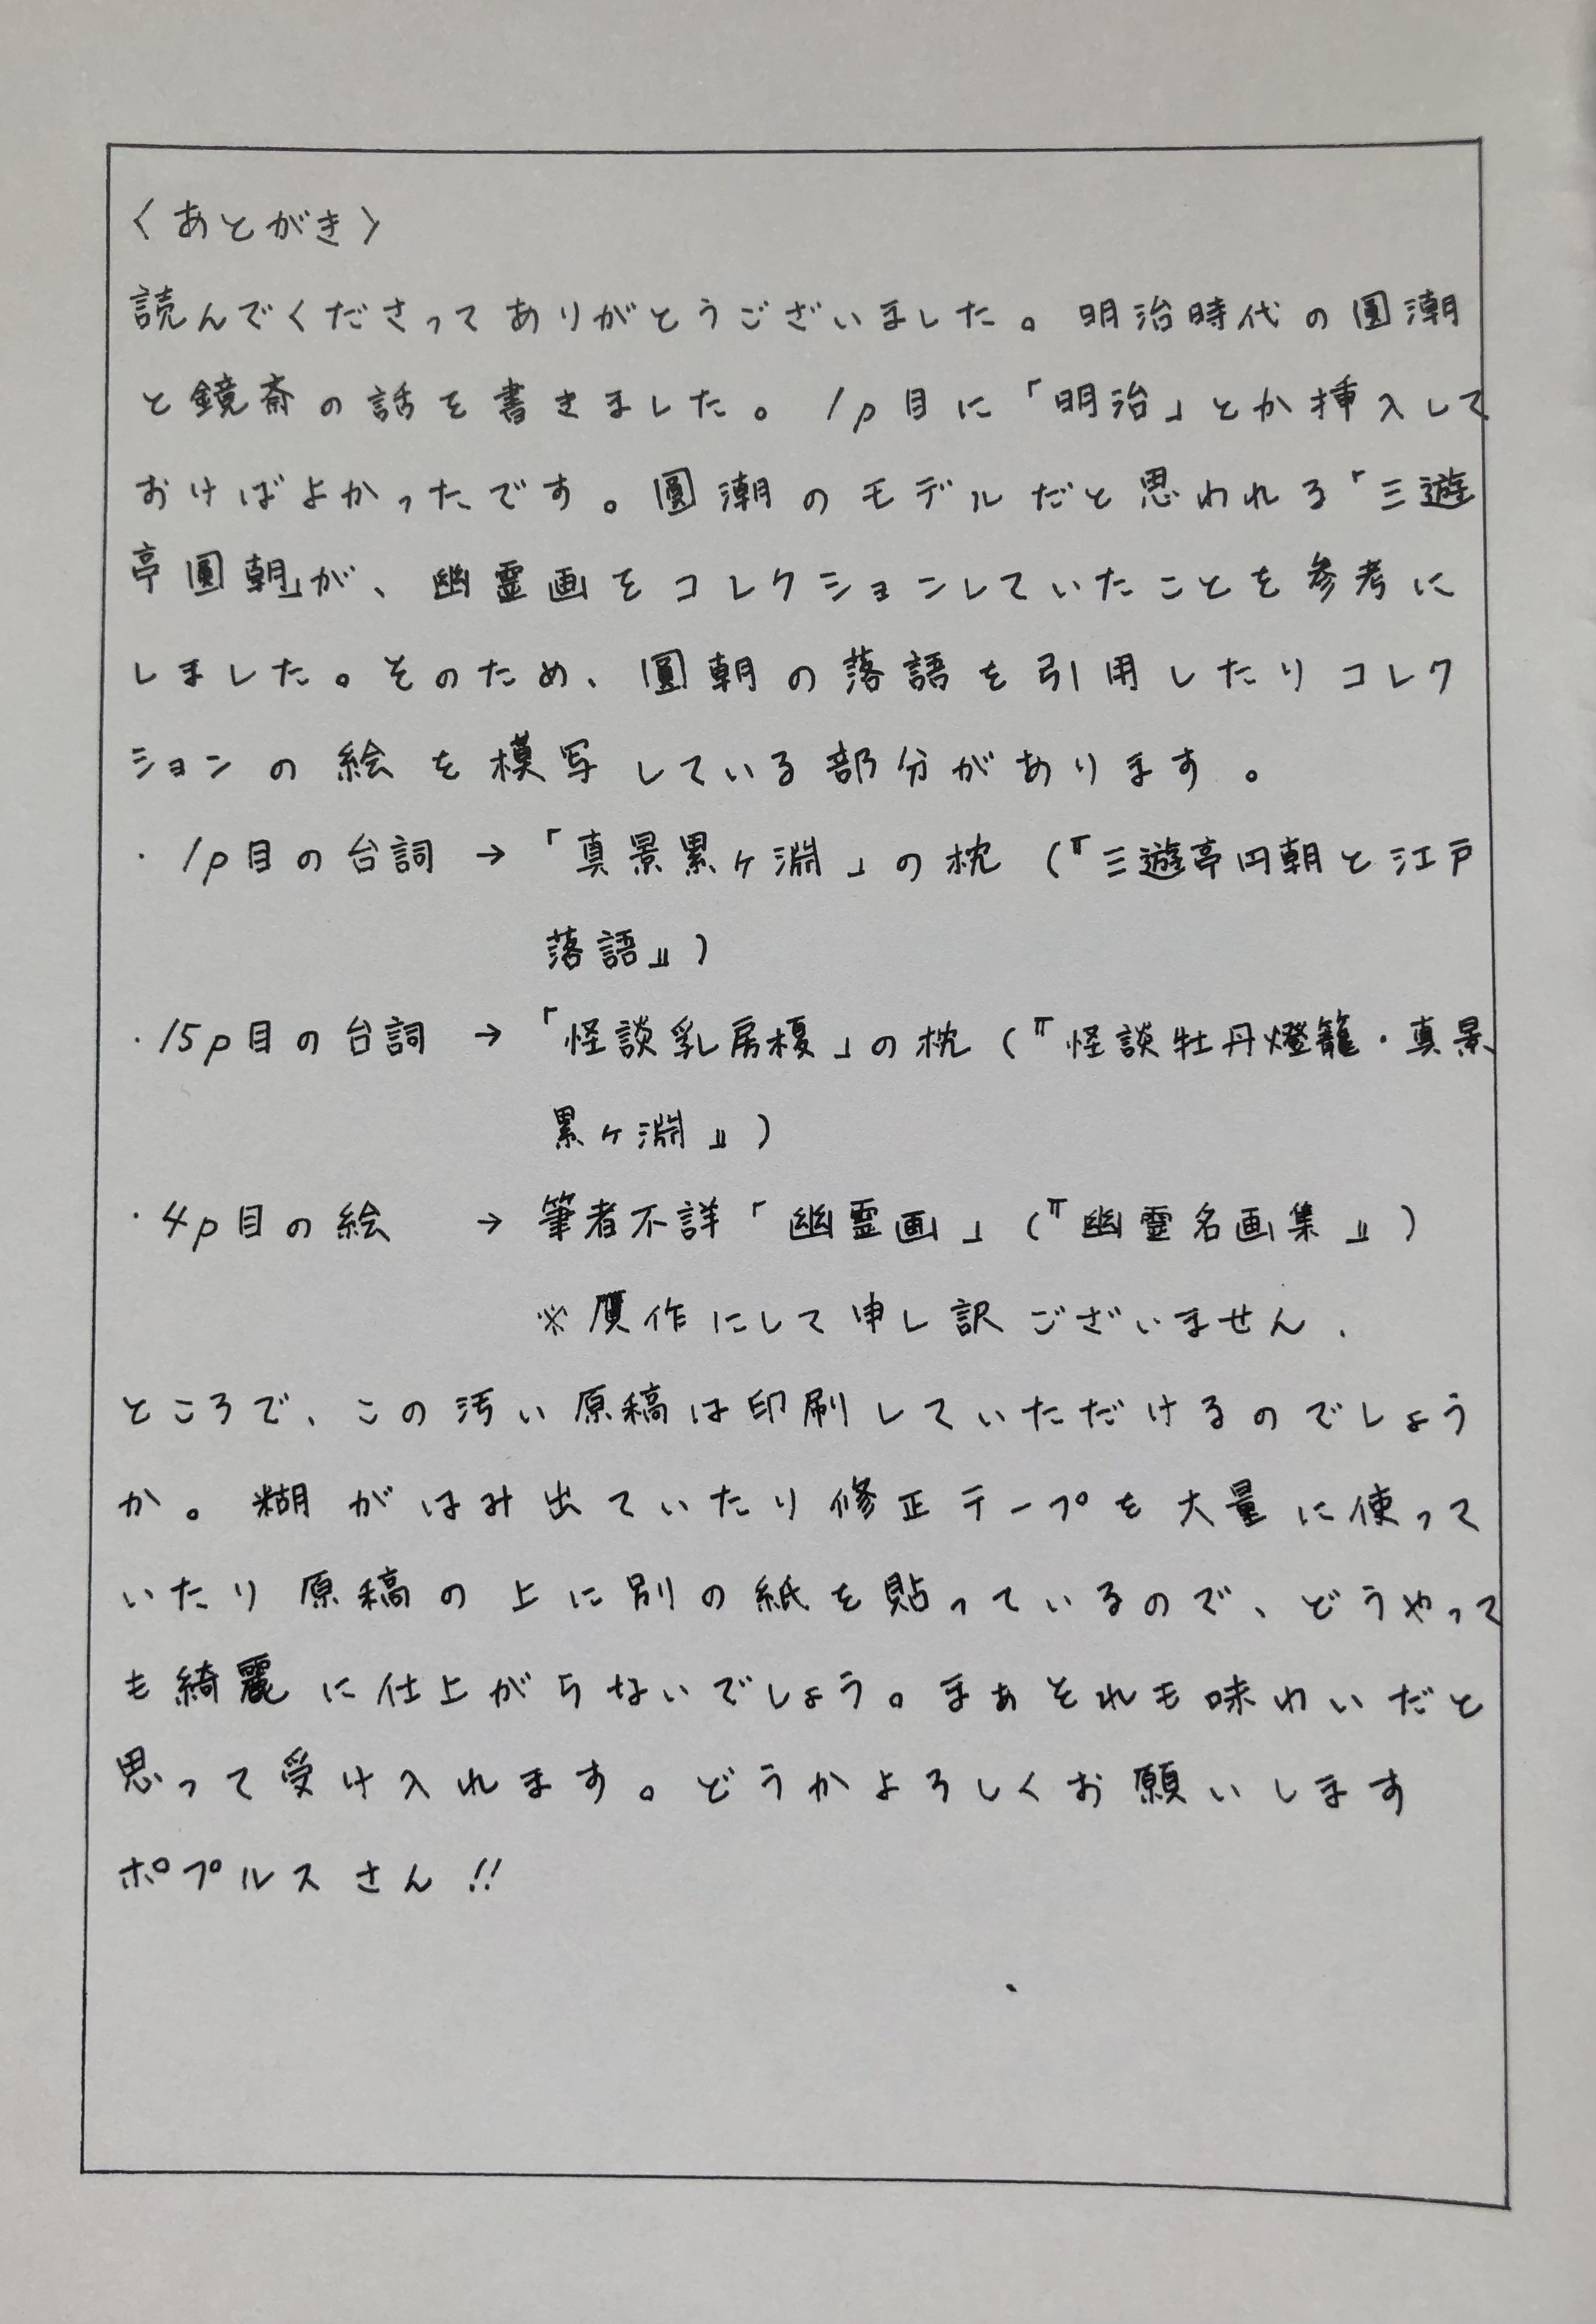 〈あとがき〉
読んでくださってありがとうございました。明治時代の圓潮
と鏡斎の話を書きました。1p目に「明治」とか挿入して
おけばよかったです。圓潮のモデルだと思われる「三遊
亭圓朝」が、幽霊画をコレクションしていたことを参考に
しました。そのため、圓朝の落語を引用したりコレク
ションの絵を模写している部分があります。
・1p目の台詞 → 「真景累ヶ淵」の枕(『三遊亭円朝と江戸
落語』)
・15p目の台詞 → 「怪談乳房榎」の枕(『怪談牡丹燈籠・真景
累ヶ淵』)
・4p目の絵 → 筆者不詳「幽霊画」(『幽霊名画集』)
※贋作にして申し訳ございません.
ところで、この汚い原稿は印刷していただけるのでしょう
か。糊がはみ出ていたり修正テープを大量に使って
いたり原稿の上に別の紙を貼っているので、どうやって
も綺麗に仕上がらないでしょう。まぁそれも味わいだと
思って受け入れます。どうかよろしくお願いします
ポプルスさん!!